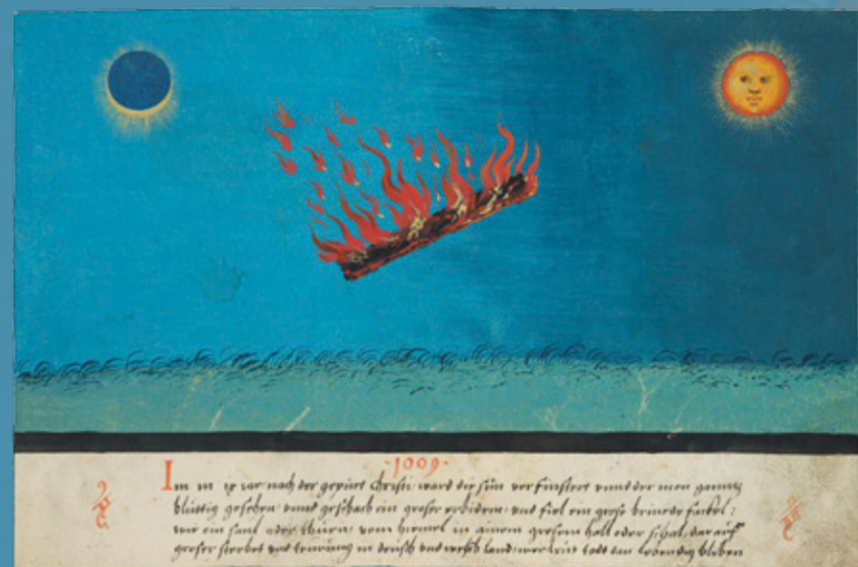 -1009-
Im m ix iar nach der gepürt Christi ward die sün verfinstert vnnd der mon ganntz
blüttig gesehen vnnd geschach ein groser erbidem vnd fiel ein grose brinede fackel:
wie ein saul oder thürn vom hiemel in ainem grosem hall oder schal, darauff
groser sterbet vnd teürung in deüsch vnd welsch land todt dan lebendig bliben